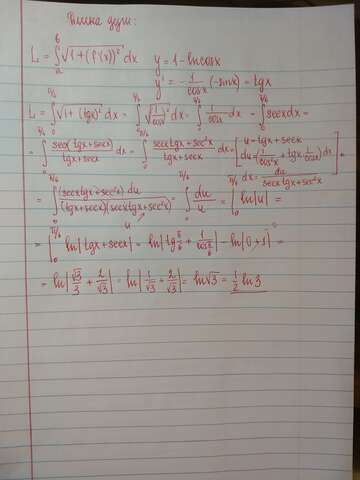 Длина дуги:
L = ∫ₐᵇ √(1 + (f'(x))²) dx   y = 1 - ln cosx
y' = - 1/cosx (-sinx) = tgx
L = ∫₀^(π/6) √(1 + (tgx)²) dx = ∫₀^(π/6) √(1/cosx)² dx = ∫₀^(π/6) 1/cosx dx = ∫₀^(π/6) secx dx =
= ∫₀^(π/6) secx(tgx+secx)/(tgx+secx) dx = ∫₀^(π/6) (secx tgx + sec²x)/(tgx+secx) dx = [u = tgx + secx, du = (1/cos²x + tgx · 1/cosx) dx, dx = du/(secx tgx + sec²x)] =
= ∫₀^(π/6) (secx tgx + sec²x) du/((tgx+secx)(secx tgx + sec²x)) = ∫₀^(π/6) du/u = |₀^(π/6) ln|u| =
= |₀^(π/6) ln|tgx + secx| = ln|tg π/6 + 1/cos π/6| - ln|0+1| =
= ln|√3/3 + 2/√3| = ln|1/√3 + 2/√3| = ln√3 = 1/2 ln3